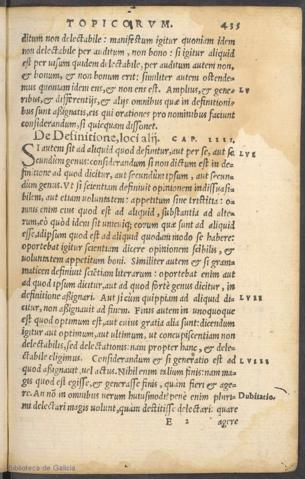 TOPICORVM. 435
ditum non delectabile: manifestum igitur quoniam idem
non delectabile per auditum, non bono: si igitur aliquid
est per visum quidem delectabile, per auditum autem non,
& bonum, & non bonum erit: similiter autem ostendemus
quoniam idem ens, & non ens est. Amplius, & gene LV
ribus, & differentijs, & alijs omnibus quæ in definitioni
bus sunt aßignatis, eis qui orationes pro nominibus faciunt
considerandum, si quicquam dissonet.
De Definitione, loci alij. CAP. IIII.
SI autem sit ad aliquid quod definitur, aut per se, aut se LVI
cundum genus: considerandum si non dictum est in de=
finitione ad quod dicitur, aut secundum ipsum, aut secun
dum genus. Vt si scientiam definiuit opinionem indissuasi
bilem, aut etiam voluntatem: appetitum sine tristitia: om
nis enim eius quod est ad aliquid, substantia ad alte=
rum, eò quòd idem sit unicuiq; eorum quæ sunt ad aliquid
esse, idipsum quod est ad aliquid quodam modo se habere:
oportebat igitur scientiam dicere opinionem scibilis, &
voluntatem appetitum boni. Similiter autem & si gram=
maticem definiuit sciẽtiam literarum: oportebat enim aut
ad quod ipsum dicitur, aut ad quod fortè genus dicitur, in
definitione aßignari. Aut si cùm quippiam ad aliquid di= LVII
citur, non aßignauit ad finem. Finis autem in unoquoque
est quod optimum est, aut cuius gratia alia sunt: dicendum
igitur aut optimum, aut ultimum, ut concupiscentiam non
delectabilis, sed delectationis: nam propter hanc, & dele=
ctabile eligimus. Considerandum & si generatio est ad LVIII
quod aßignauit, vel actus. Nihil enim talium finis: nam ma=
gis quod est egisse, & generasse finis, quàm fieri & age=
re. An nõ in omnibus verum huiusmodi? penè enim pluri= Dubitatio.
mi delectari magis volunt, quàm destitisse delectari: quare
E 2 agere
Biblioteca de Galicia